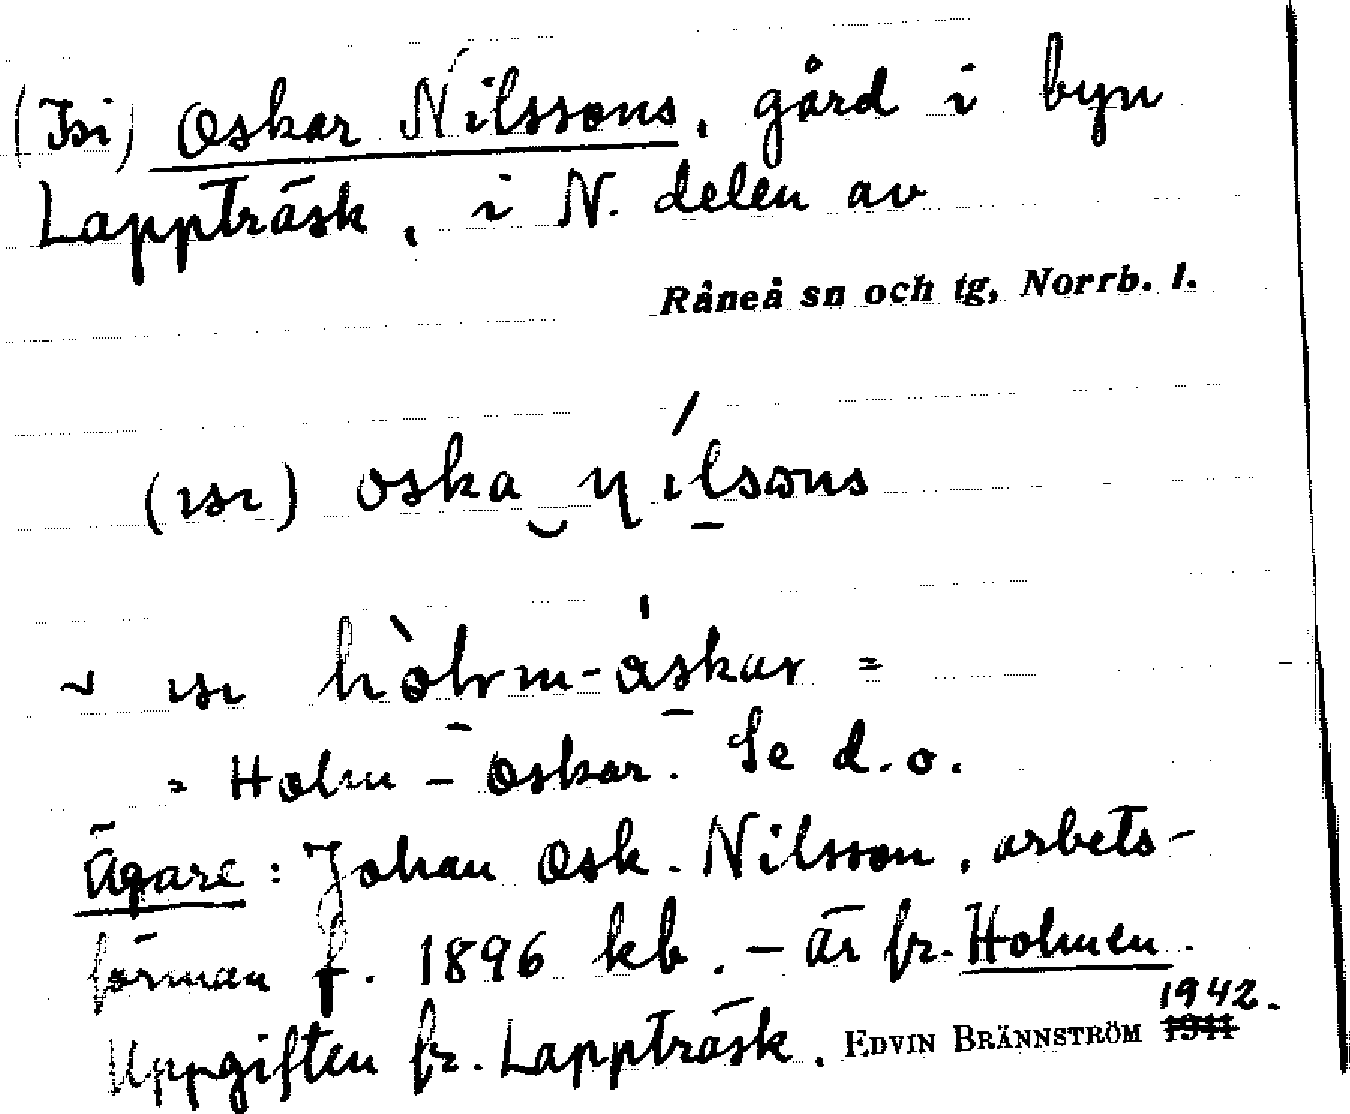 (Isi) Oskar Nilssons, gård i byn
Lappträsk, i N. delen av
Råneå sn och tg, Norrb. l.
(ısı) oska nílsons
ısı hòlm-áskar =
= Holm-Oskar. Se d.o.
Ägare: Johan Osk. Nilsson, arbets-
förman f. 1896 kb. – är fr. Holmen.
1942.
Uppgiften fr. Lappträsk. EDVIN BRÄNNSTRÖM 1941